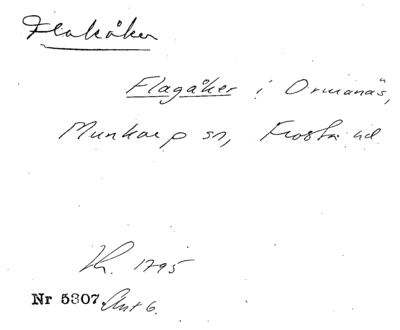 Flakåker
Flagåker i Ormanäs,
Munkarp sn, Frosta hd
Kh. 1795
Nr 5307 Akt 6.